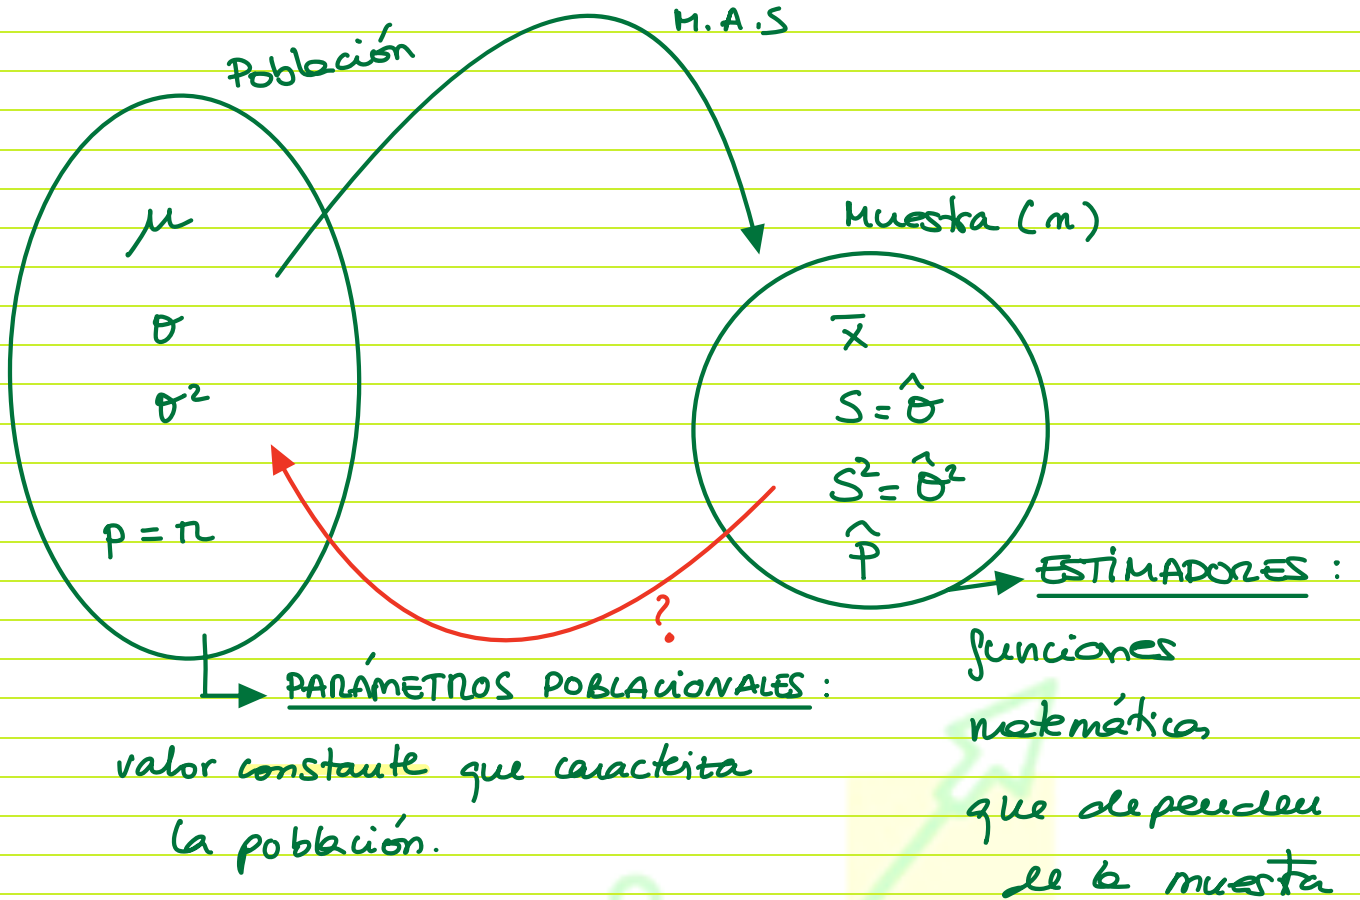 Población
M.A.S
μ
σ
σ²
p = π
Muestra (n)
x̄
S = σ̂
S² = σ̂²
p̂
?
ESTIMADORES :
funciones
matemáticas
que dependen
de la muestra
PARÁMETROS POBLACIONALES :
valor constante que caracteriza
la población.